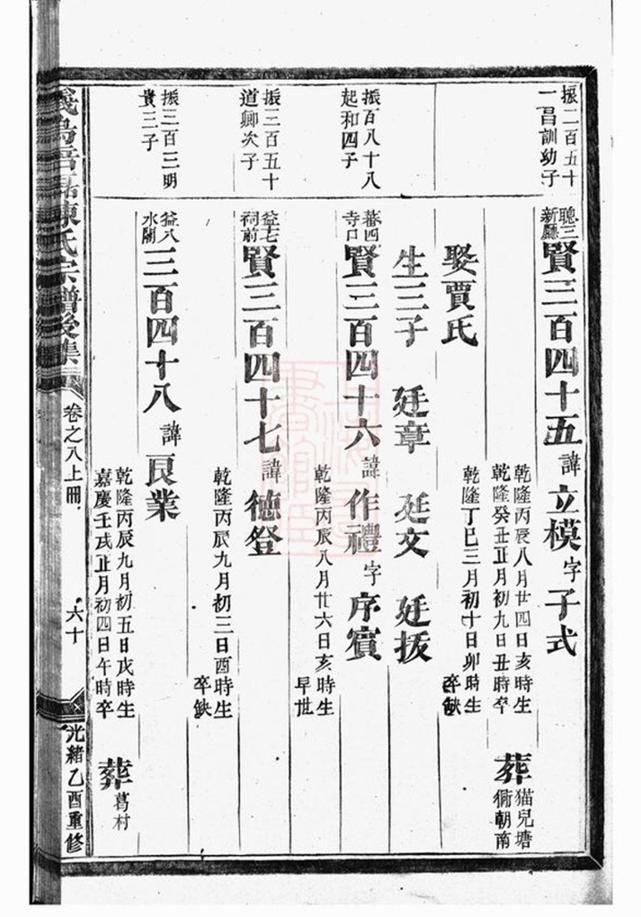 振二百五十
一昌訓幼子
聰三
新廳
賢三百四十五
諱
立模
字
子式
乾隆丙辰八月廿四日亥時生
乾隆癸丑正月初九日丑時卒
葬
猫兒塘
衕朝南
娶賈氏
乾隆丁巳三月初十日卯時生
卒缺
生三子
廷章
廷文
廷拔
振百八十八
起和四子
蕃四
寺口
賢三百四十六
諱
作禮
字
序賓
乾隆丙辰八月廿六日亥時生
早世
振三百五十
道卿次子
益七
祠前
賢三百四十七
諱
德登
乾隆丙辰九月初三日酉時生
卒缺
振三百三明
貴三子
益八
水閣
三百四十八
諱
良業
乾隆丙辰九月初五日戌時生
嘉慶壬戌正月初四日午時卒
葬
葛村
陳氏宗譜後集
卷之八上冊
六十
光緒乙酉重修